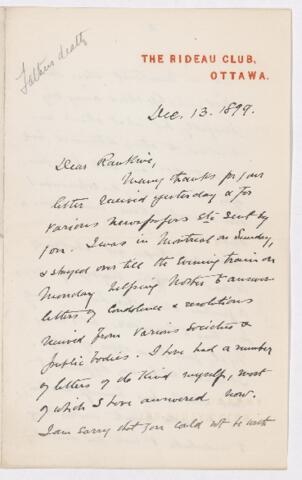 Fathers death
THE RIDEAU CLUB,
OTTAWA.
Dec. 13. 1899.
Dear Rankine,
Many thanks for your
letter received yesterday & for
various newspapers etc sent by
you. I was in Montreal on Sunday,
& stayed over till the Evening train on
Monday helping Mother to answer
letters of Condolence & resolutions
received from various societies &
public bodies. I have had a number
of letters of do kind myself, most
of which I have answered now.
I am sorry that you could not be with